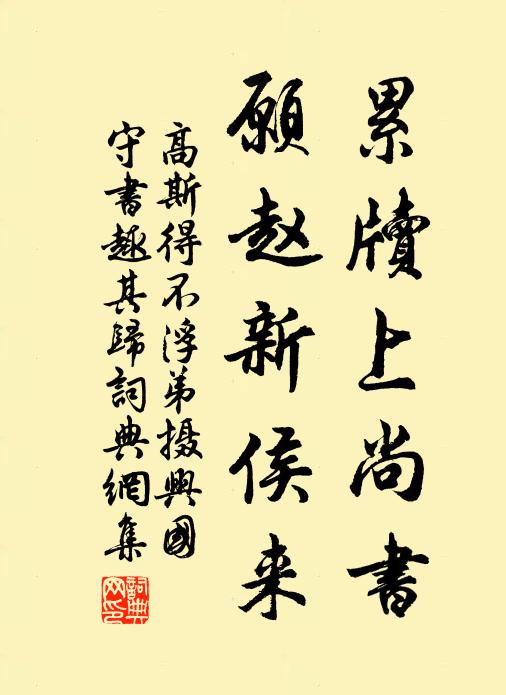 累牍上尚書
願赵新侯来
高斯得不浮弟摄興國
守書趣其歸詞典網集
詞典
网印